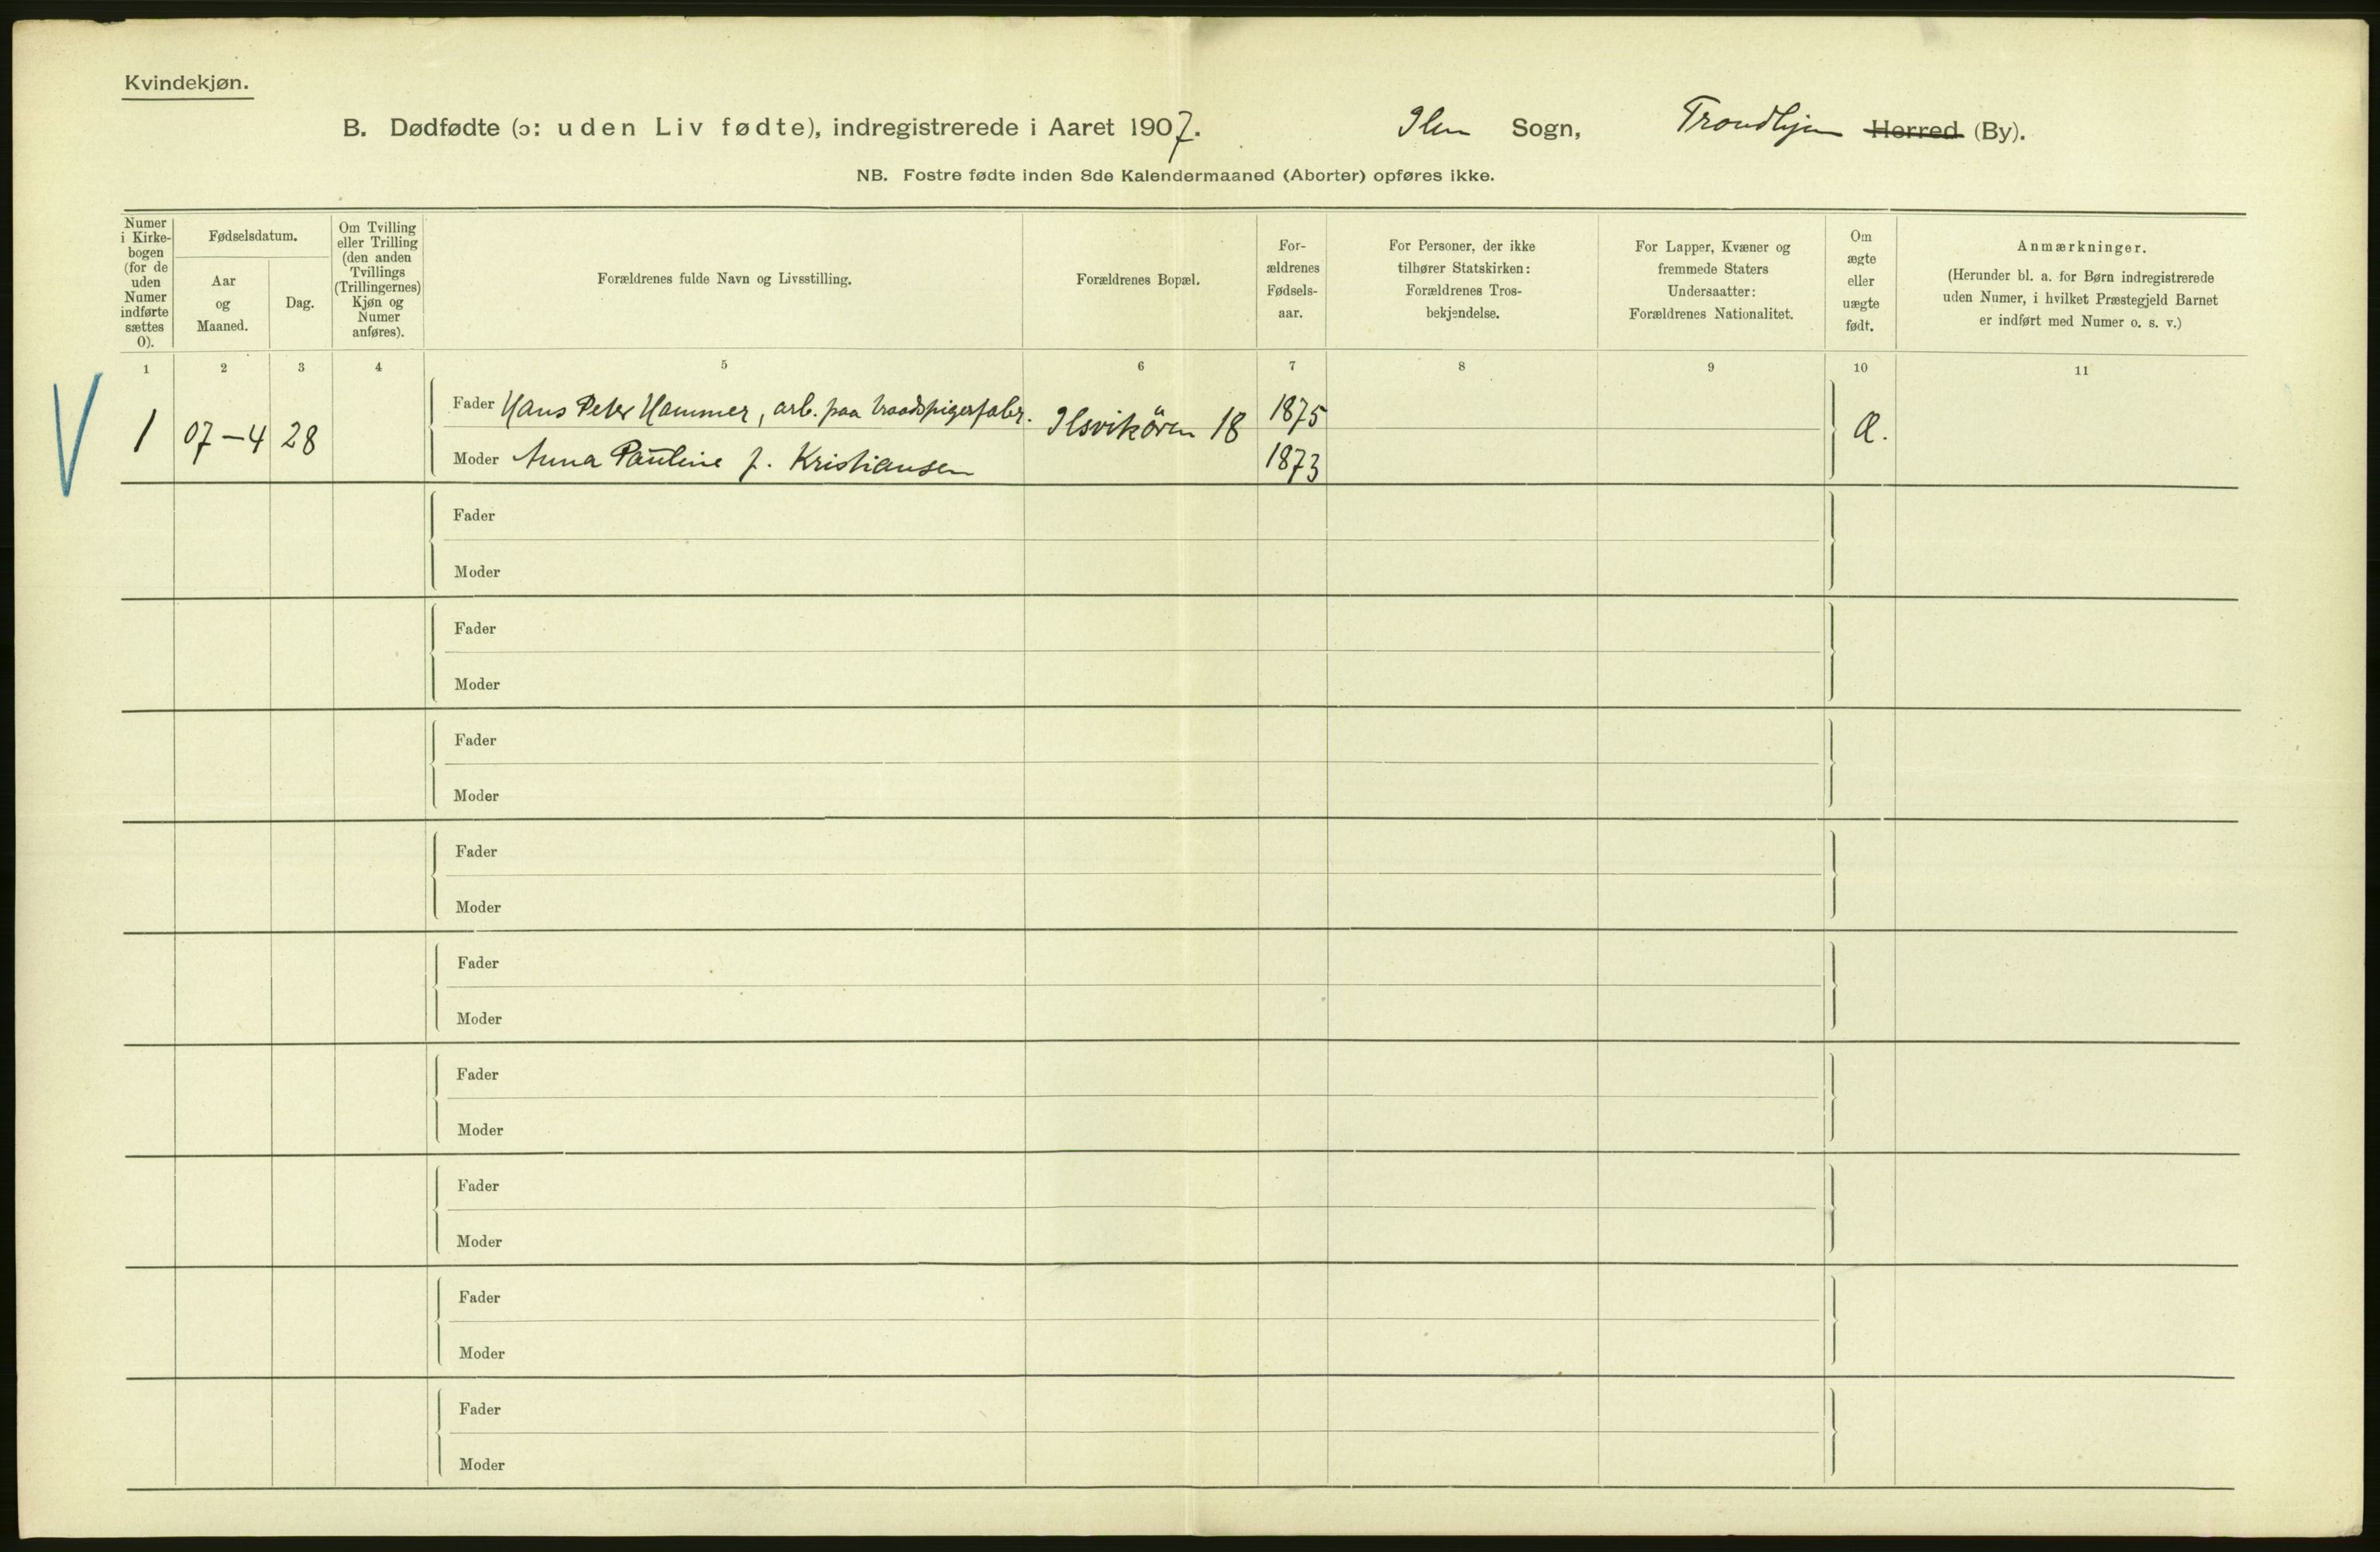 Kvindekjøn.
B. Dødfødte (ɔ: uden Liv fødte), indregistrerede i Aaret 1907. Ilen Sogn, Trondhjem Herred (By).
NB. Fostre fødte inden 8de Kalendermaaned (Aborter) opføres ikke.
Numer
i Kirke-
bogen
(for de
uden
Numer
indførte
sættes
0).
Fødselsdatum.
Aar
og
Maaned.
Dag.
Om Tvilling
eller Trilling
(den anden
Tvillings
(Trillingernes)
Kjøn og
Numer
anføres).
Forældrenes fulde Navn og Livsstilling.
Forældrenes Bopæl.
For-
ældrenes
Fødsels-
aar.
For Personer, der ikke
tilhører Statskirken:
Forældrenes Tros-
bekjendelse.
For Lapper, Kvæner og
fremmede Staters
Undersaatter:
Forældrenes Nationalitet.
Om
ægte
eller
uægte
født.
Anmærkninger.
(Herunder bl. a. for Børn indregistrerede
uden Numer, i hvilket Præstegjeld Barnet
er indført med Numer o. s. v.)
1 2 3 4 5 6 7 8 9 10 11
V
1 07-4 28
Fader Hans Peter Hammer, arb. paa traadspigerfabr. Ilsvikören 18 1875
Æ.
Moder Anna Pauline f. Kristiansen 1873
Fader
Moder
Fader
Moder
Fader
Moder
Fader
Moder
Fader
Moder
Fader
Moder
Fader
Moder
Fader
Moder
Fader
Moder